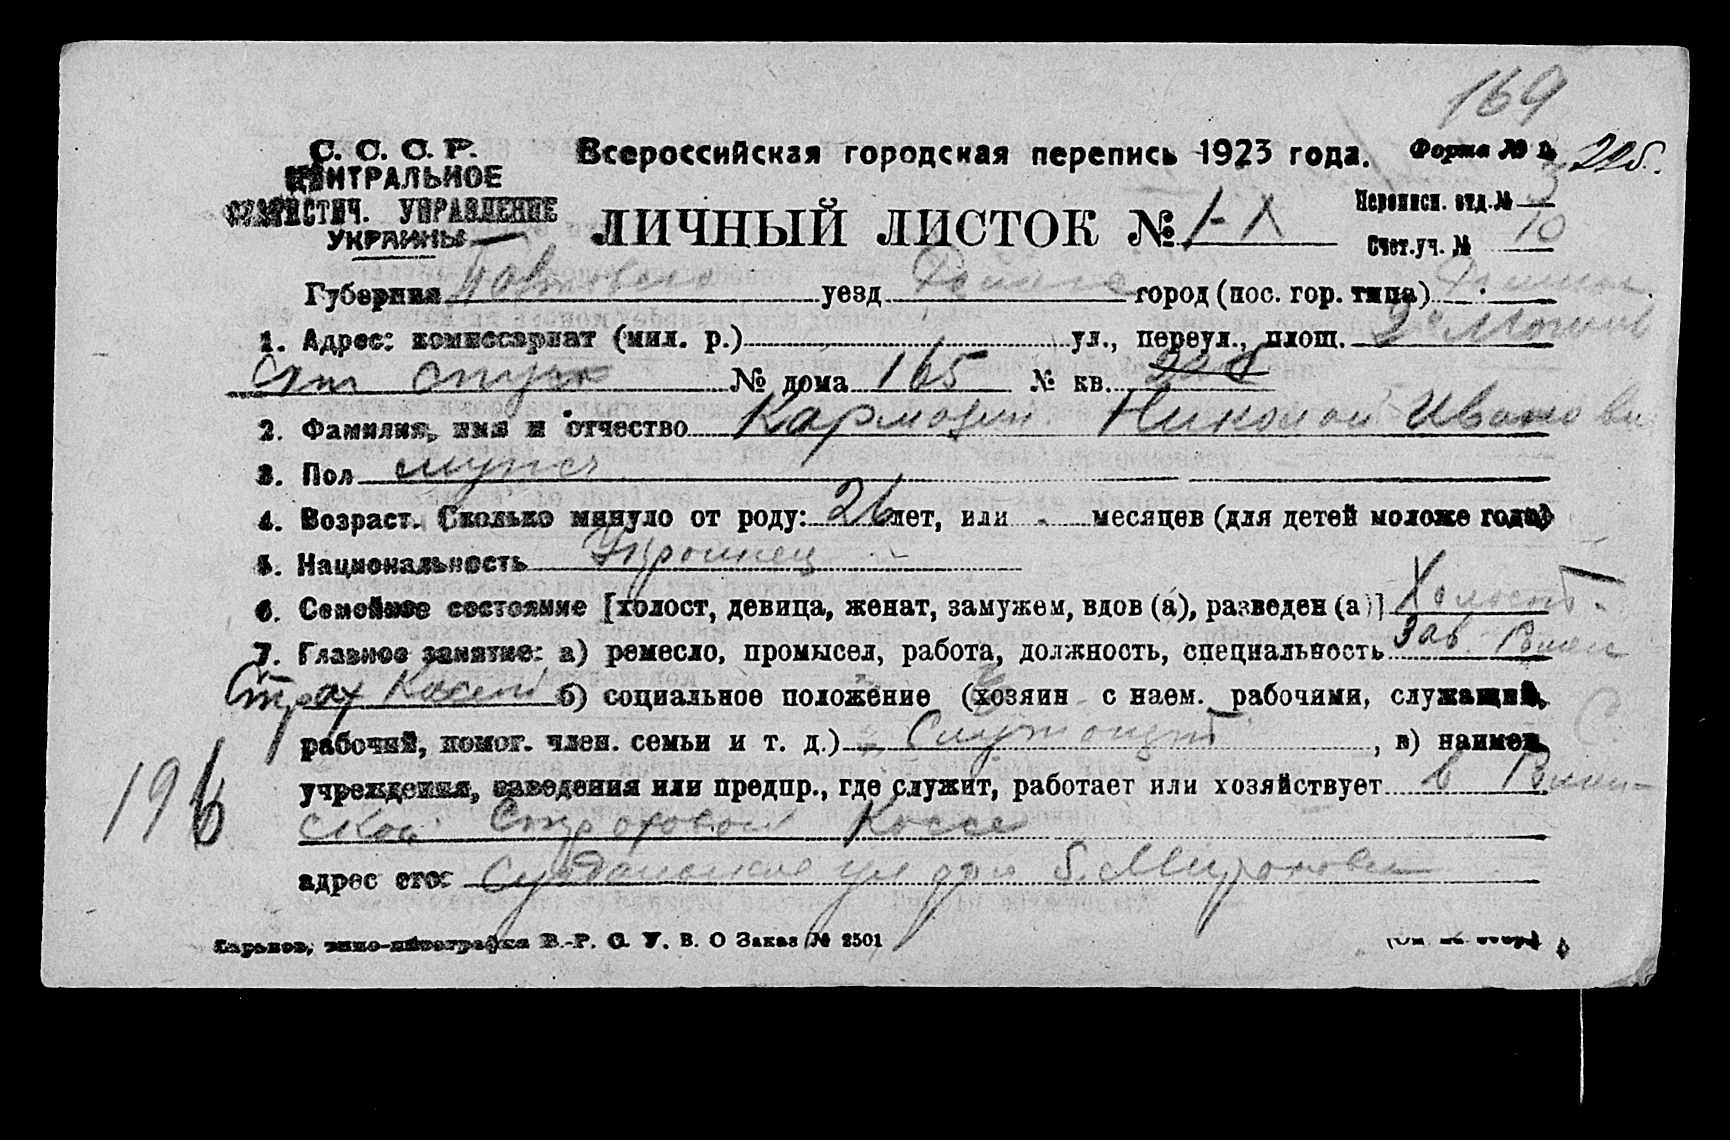 169
С. С. С. Р. Всероссийская городская перепись 1923 года. Форма № 1. 22б.
ЦЕНТРАЛЬНОЕ
СТАТИСТИЧ. УПРАВЛЕНИЕ
УКРАИНЫ
ЛИЧНЫЙ ЛИСТОК №
Переписн. отд. № 3
Счет.уч. № 10
Губерния Полтавская уезд город (пос. гор. типа)
1. Адрес: комиссариат (мил. р.) ул., переул., площ. 2
№ дома 165 № кв.
2. Фамилия, имя и отчество Кармазин Николай Иванови
3. Пол мужск
4. Возраст. Сколько минуло от роду: 26 лет, или - месяцев (для детей моложе года)
5. Национальность Украинец
6. Семейное состояние [холост, девица, женат, замужем, вдов (а), разведен (а)] Холост.
7. Главное занятие: а) ремесло, промысел, работа, должность, специальность Зав.
Страх Кассой б) социальное положение (хозяин с наем. рабочими, служащий,
рабочий, помог. член. семьи и т. д.) Служащий, в) наимен.
учреждения, заведения или предпр., где служит, работает или хозяйствует в
ской Страховой Кассе
196
адрес его: ул дом б. Мироновой
Харьков, типо-литография В.-Р. С. У. В. О Заказ № 2501